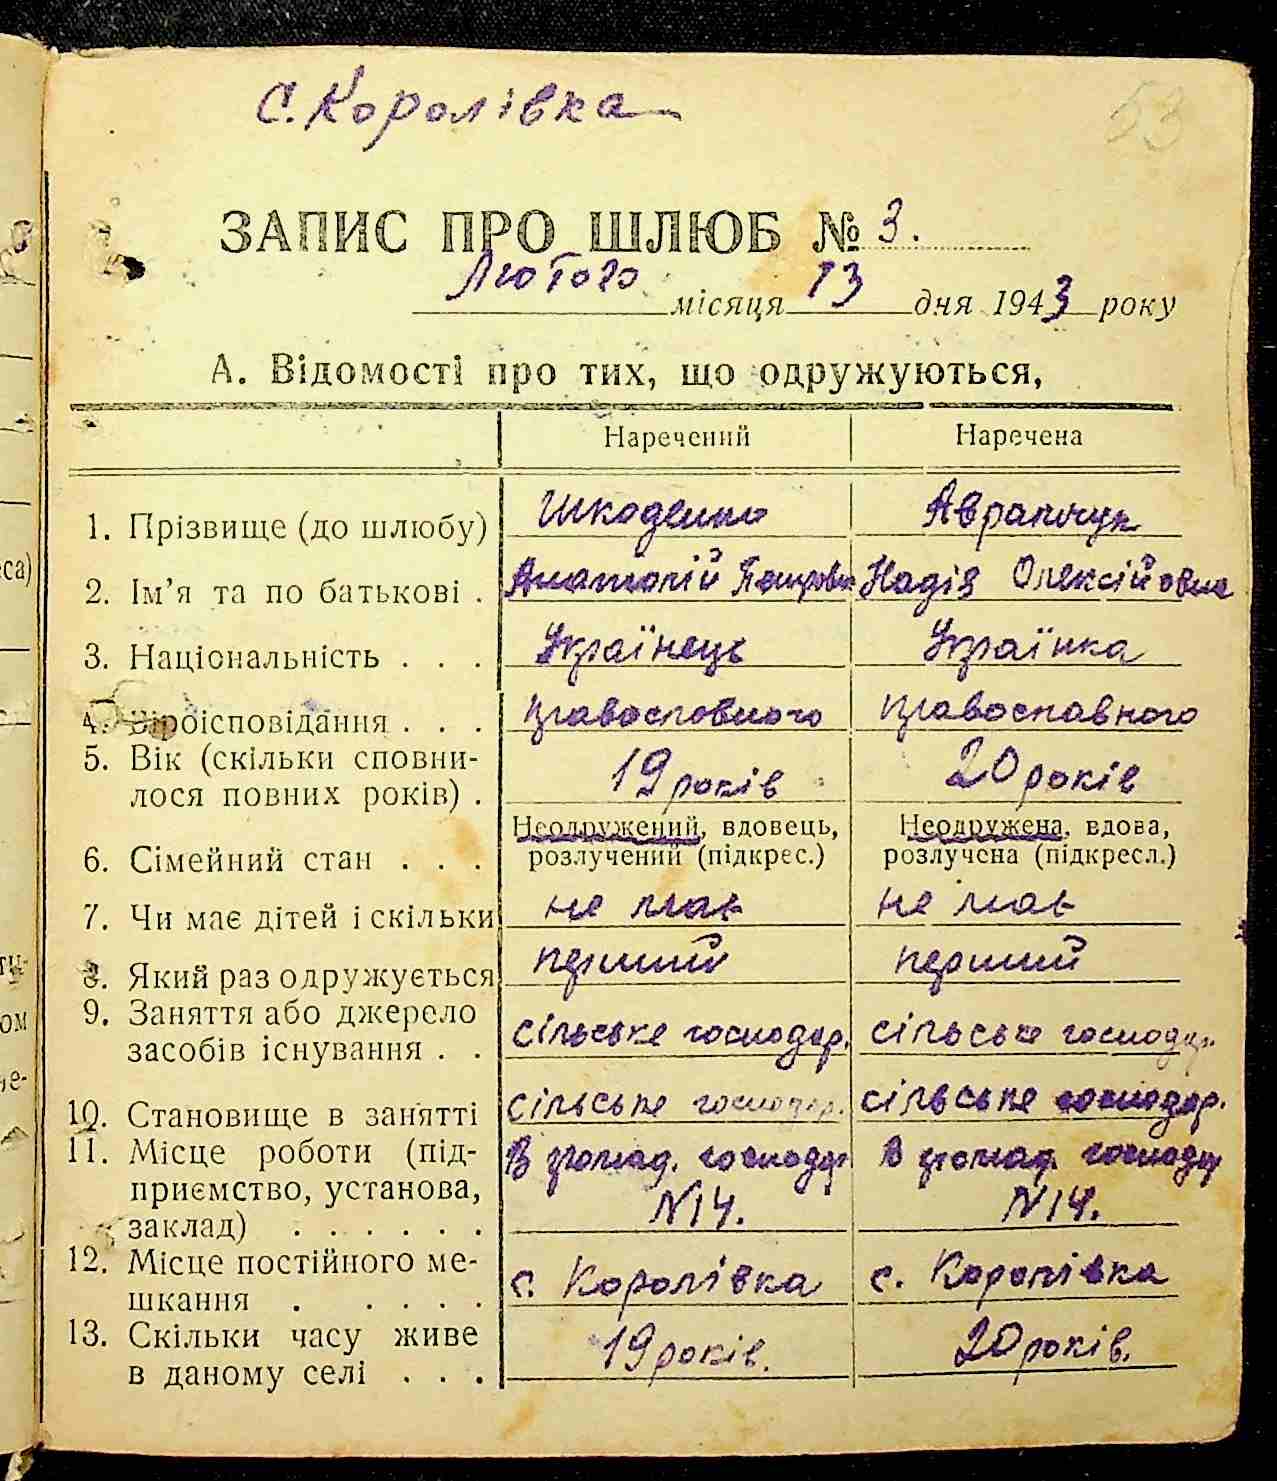 с. Королівка
53
ЗАПИС ПРО ШЛЮБ № 3.
Лютого місяця 13 дня 1943 року
А. Відомості про тих, що одружуються,
Наречений Наречена
1. Прізвище (до шлюбу) Шкоденко Аврамчук
2. Ім'я та по батькові . Анатолій Петрович Надія Олексійовна
3. Національність . . . Українець Українка
4. Віроісповідання . . . православного православного
5. Вік (скільки сповни-
лося повних років) . 19 років 20 років
Неодружений, вдовець, Неодружена, вдова,
6. Сімейний стан . . . розлучений (підкрес.) розлучена (підкресл.)
7. Чи має дітей і скільки не має не має
8. Який раз одружується перший перший
9. Заняття або джерело
засобів існування . . сільське господар. сільське господар.
10. Становище в занятті сільське господар. сільське господар.
11. Місце роботи (під- В громад. господар В громад. господар
приємство, установа, N14. N14.
заклад) . . . . . .
12. Місце постійного ме-
шкання . . . . . с. Королівка с. Королівка
13. Скільки часу живе
в даному селі . . . 19 років. 20 років.
са)
ом